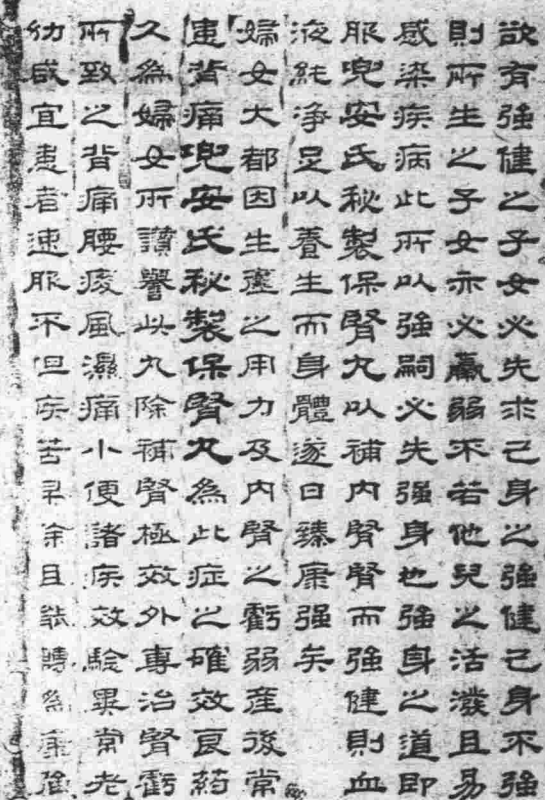 欲有強健之子女必先求己身之強健己身不強
則所生之子女亦必羸弱不若他兒之活潑且易
感染疾病此所以強嗣必先強身也強身之道即
服兜安氏秘製保腎丸以補內腎腎而強健則血
液純淨足以養生而身體遂日臻康强矣
婦女大都因生產之用力及內腎之虧弱產後常
患背痛兜安氏秘製保腎丸為此症之確效良葯
久為婦女所讚譽此丸除補腎極效外專治腎虧
所致之背痛腰痠風濕痛小便諸疾效驗異常老
幼咸宜患者速服不但疾苦早除且能轉為康強